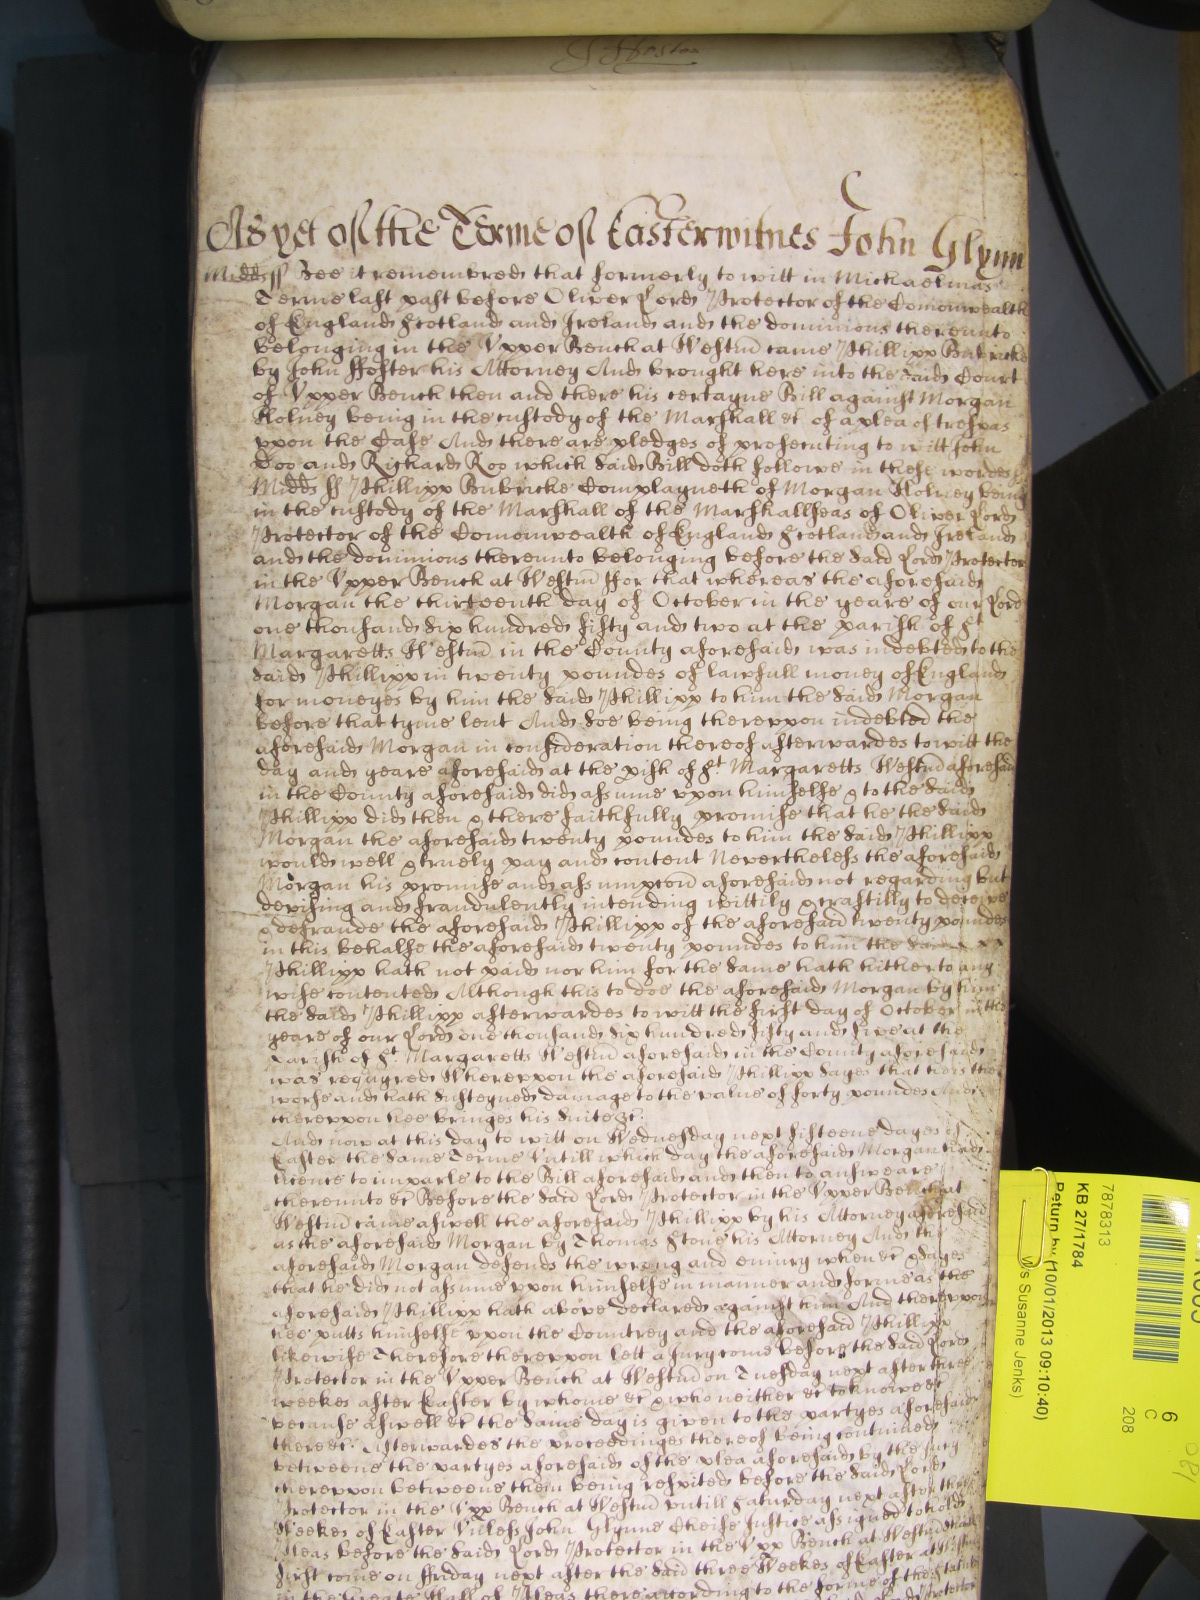 As yet of the Terme of Easter witnes John Glynn
Midds ss Bee it remembred that formerly to witt in Michaelmas
Terme last past before Oliver Lord Protector of the Comonwealth
of England Scotland and Ireland and the dominions thereunto
belonging in the Vpper Bench at Westm̄ came Phillipp Bubricke
by John Ffoster his Attorney And brought here into the said Court
of Vpper Bench then and there his certayne Bill against Morgan
Holney being in the custody of the Marshall &c of a plea of trespas
vpon the Case And there are pledges of prosecuting to witt John
Doo and Richard Roo which said Bill doth followe in these wordes
Midds ss Phillipp Bubricke Complayneth of Morgan Holney being
in the custody of the Marshall of the Marshallseas of Oliver Lord
Protector of the Comonwealth of England Scotland and Ireland
and the dominions thereunto belonging before the said Lord Protector
in the Vpper Bench at Westm̄ ffor that whereas the aforesaid
Morgan the thirteenth day of October in the yeare of our Lord
one thousand six hundred fifty and two at the parish of St
Margaretts Westm̄ in the County aforesaid was indebted to the
said Phillipp in twenty poundes of lawfull money of England
for moneyes by him the said Phillipp to him the said Morgan
before that tyme lent And soe being therevpon indebted the
aforesaid Morgan in consideration thereof afterwardes to witt the
day and yeare aforesaid at the pish of St Margaretts Westm̄ aforesaid
in the County aforesaid did assume vpon himselfe & to the said
Phillipp did then & there faithfully promise that he the said
Morgan the aforesaid twenty poundes to him the said Phillipp
would well & truely pay and content Neverthelesse the aforesaid
Morgan his promise and assumpcon̄ aforesaid not regarding but
devising and fraudulently intending wittily & craftilly to deceive
& defraude the aforesaid Phillipp of the aforesaid twenty poundes
in this behalfe the aforesaid twenty poundes to him the same
Phillipp hath not paid nor him for the same hath hitherto any
wise contented Although this to doe the aforesaid Morgan by him
the said Phillipp afterwardes to witt the first day of October in the
yeare of our Lord one thousand six hundred fifty and five at the
parish of St Margaretts Westm̄ aforesaid in the County aforesaid
was requyred Wherevpon the aforesaid Phillipp sayes that hee is the
worse and hath susteyned damage to the value of forty poundes And
therevpon hee bringes his suite &c.
And now at this day to witt on Wednesday next fifteene dayes of
Easter the same Terme Vntill which day the aforesaid Morgan had
licence to imparle to the Bill aforesaid and then to answeare
thereunto &c Before the said Lord Protector in the Vpper Bench at
Westm̄ came aswell the aforesaid Phillipp by his Attorney aforesaid
as the aforesaid Morgan by Thomas Stone his Attorney And the
aforesaid Morgan defends the wrong and eniury when &c & sayes
that he did not assume vpon himselfe in manner and forme as the
aforesaid Phillipp hath above declared against him And therevpon
hee putts himselfe vpon the Countrey and the aforesaid Phillipp
likewise Therefore therevpon lett a Jury come before the said Lord
Protector in the Vpper Bench at Westm̄ on Tuesday next after three
weekes after Easter by whome &c & who neither &c to knowe &c
because aswell &c the same day is given to the partyes aforesaid
there &c. Afterwardes the proceedinges thereof being continued
betweene the partyes aforesaid of the plea aforesaid by the Jury
therevpon betweene them being respited before the said Lord
Protector in the Vpp Bench at Westm̄ vntill Saturday next after three
Weekes of Easter Vnlesse John Glynne Cheife Justice assigned to hold
Pleas before the said Lord Protector in the Vpp Bench at Westm̄ shall
first come on ffriday next after the said three Weekes of Easter at Westm̄
in the Greate Hall of Pleas there according to the forme of the Statute
7878313
KB 27/1784
Return by (10/01/2013 09:10:40)
Ms Susanne Jenks)
6
C
208